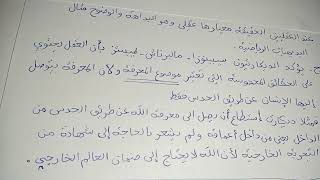 عند العقليين الحقيقة معيارها عقلي وهو البداهة والوضوح مثال
البديهيات الرياضية.
ج- يؤكد الديكارتيون سبينوزا - مالبرانش - ليبنتز بأن العقل يحتوي
على الحقائق المعصومة التي تعتبر موضوع المعرفة ولأن المعرفة يتوصل
إليها الإنسان عن طريق الحدس فقط
فمثلا ديكارت استطاع أن يصل إلى معرفة الله عن طريق الحدس من
الداخل يعني من داخل أعماقه ولم يشعر بالحاجة إلى شهادة من
التجربة الخارجية لأن الله لا يحتاج إلى ضمان العالم الخارجي.